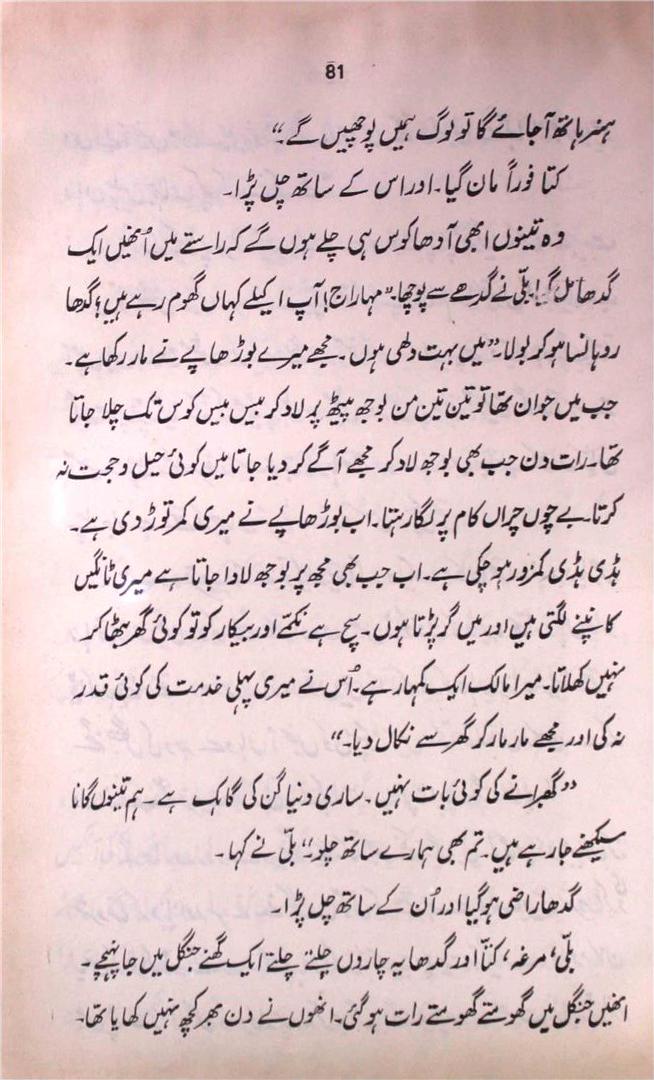 81
ہنر ہاتھ آجائے گا تو لوگ ہمیں پوچھیں گے۔“
کتا فوراً مان گیا۔ اور اس کے ساتھ چل پڑا۔
وہ تینوں ابھی آدھا کوس ہی چلے ہوں گے کہ راستے میں اُنھیں ایک
گدھا مل گیا۔ بلّی نے گدھے سے پوچھا۔ ”مہاراج! آپ اکیلے کہاں گھوم رہے ہیں؟ گدھا
روہانسا ہو کر بولا۔ ”میں بہت دکھی ہوں۔ مجھے میرے بوڑھاپے نے مار رکھا ہے۔
جب میں جوان تھا تو تین تین من بوجھ پیٹھ پر لاد کر بیس بیس کوس تک چلا جاتا
تھا۔ رات دن جب بھی بوجھ لاد کر مجھے آگے کر دیا جاتا میں کوئی حیل و حجت نہ
کرتا۔ بے چوں چراں کام پر لگا رہتا۔ اب بوڑھاپے نے میری کمر توڑ دی ہے۔
ہڈی ہڈی کمزور ہو چکی ہے۔ اب جب بھی مجھ پر بوجھ لادا جاتا ہے میری ٹانگیں
کانپنے لگتی ہیں اور میں گر پڑتا ہوں۔ سچ ہے نکمّے اور بیکار کو تو کوئی گھر بٹھا کر
نہیں کھلاتا۔ میرا مالک ایک کمہار ہے۔ اُس نے میری پہلی خدمت کی کوئی قدر
نہ کی اور مجھے مار مار کر گھر سے نکال دیا۔“
”گھبرانے کی کوئی بات نہیں۔ ساری دنیا گن کی گاہک ہے۔ ہم تینوں گانا
سیکھنے جا رہے ہیں۔ تم بھی ہمارے ساتھ چلو۔“ بلّی نے کہا۔
گدھا راضی ہو گیا اور اُن کے ساتھ چل پڑا۔
بلّی، مرغہ، کتّا اور گدھا یہ چاروں چلتے چلتے ایک گھنے جنگل میں جا پہنچے۔
انھیں جنگل میں گھومتے گھومتے رات ہو گئی۔ انھوں نے دن بھر کچھ نہیں کھایا تھا۔